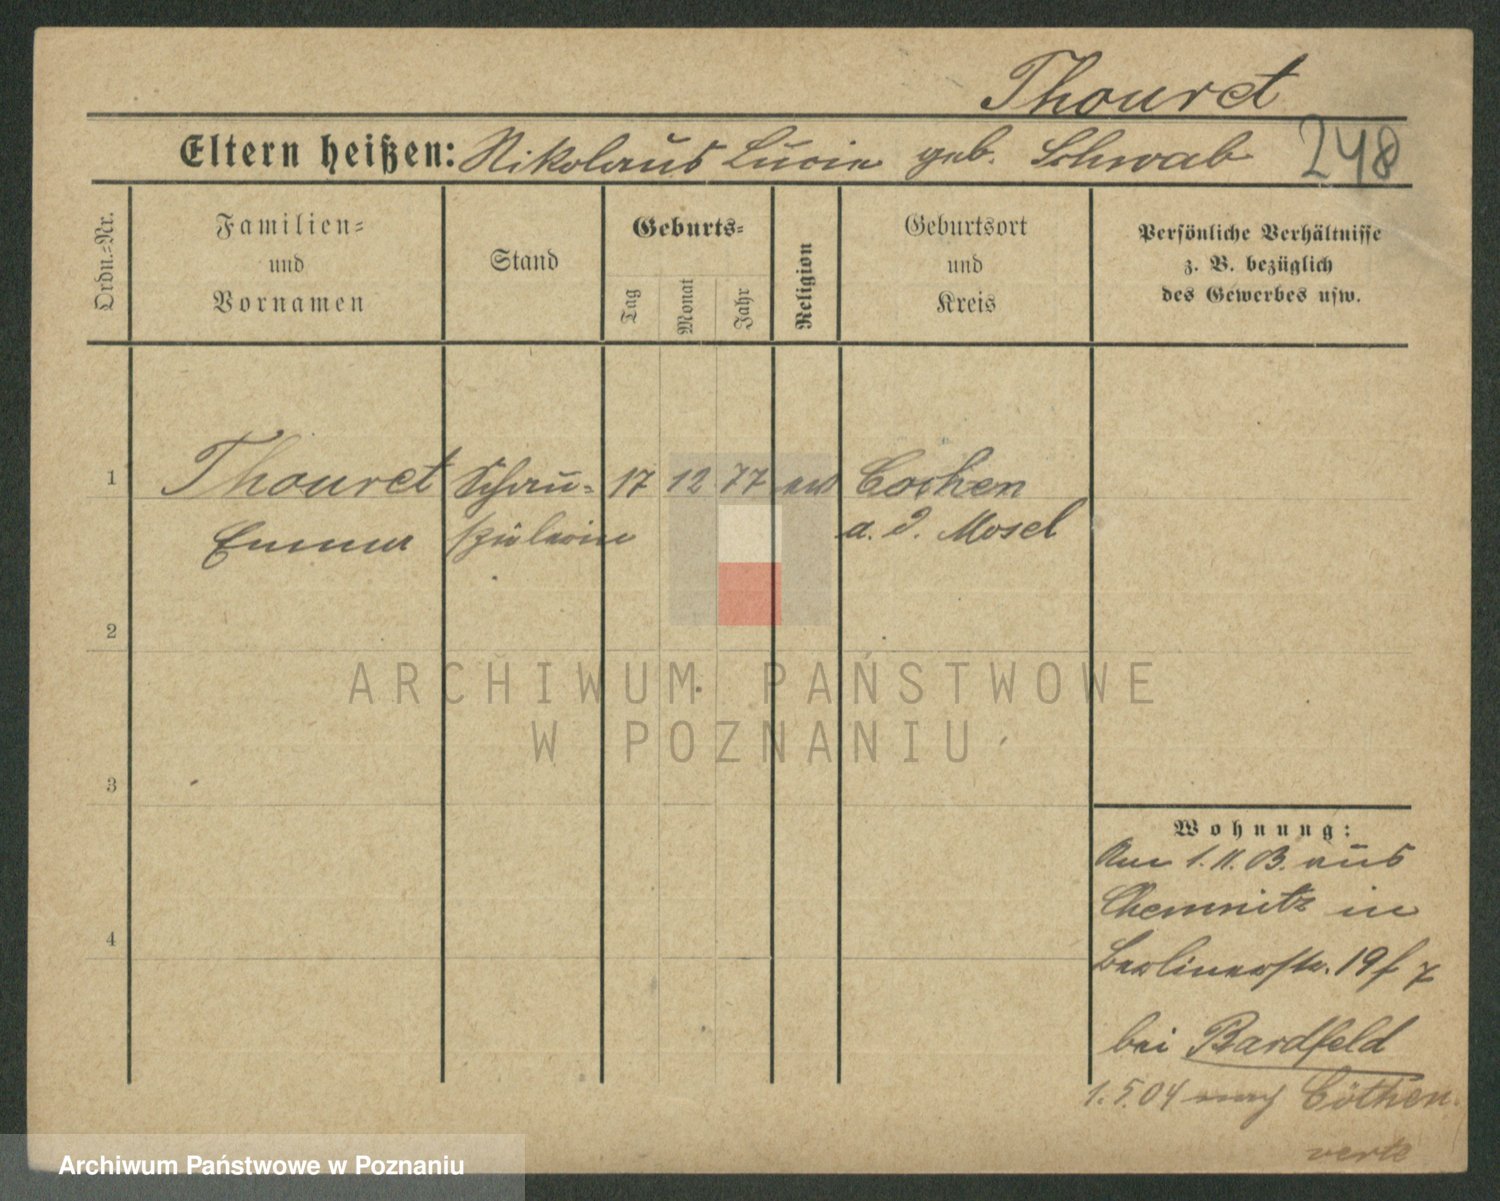 Thouret
Eltern heißen: Nikolaus Lucie geb. Schwab
248
Ordn.-Nr.
Familien-
und
Vornamen
Stand
Geburts-
Tag
Monat
Jahr
Religion
Geburtsort
und
Kreis
Persönliche Verhältnisse
z. B. bezüglich
des Gewerbes usw.
1 Thouret Schau- 17 12 77 Cochen
Emma spielerin a. d. Mosel
2
ARCHIWUM PAŃSTWOWE
W POZNANIU
3
Wohnung:
Am 1. 11. 03. aus
Chemnitz in
4
Berlinerstr. 19
bei Bardfeld
1. 5. 04 nach Cöthen.
verte
Archiwum Państwowe w Poznaniu